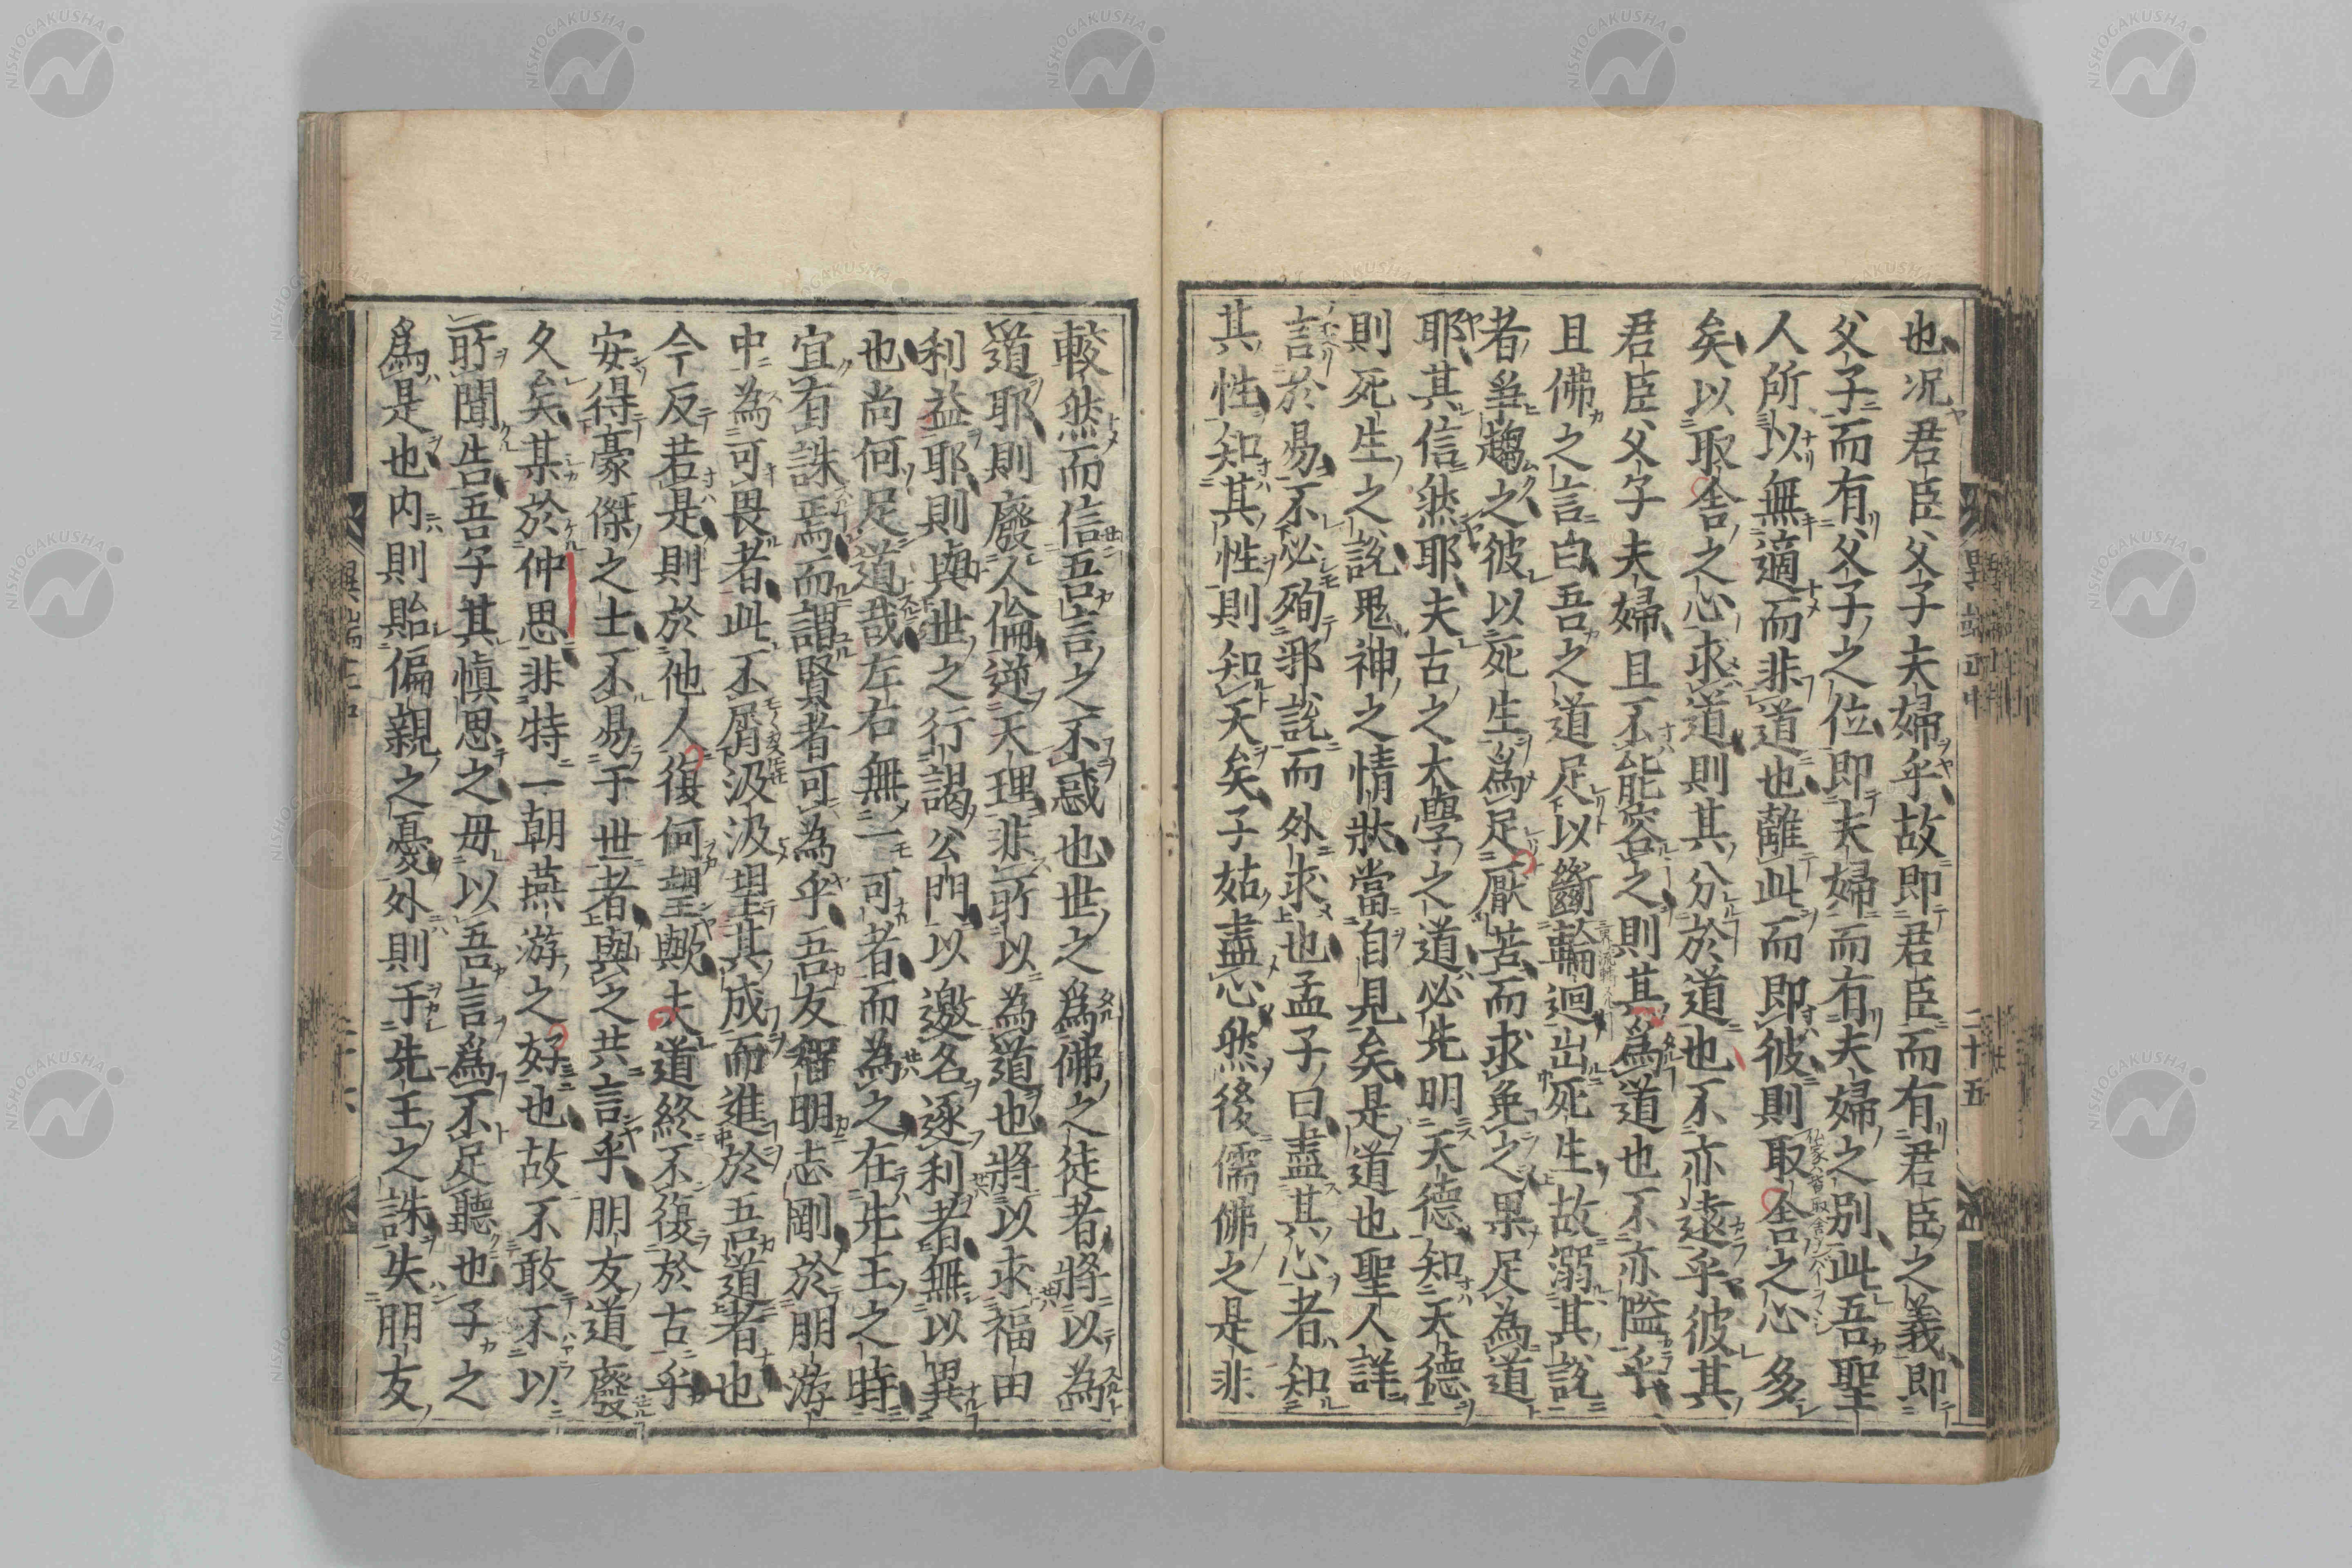 也况君臣父子夫婦乎故即君臣而有君臣之義即
父子而有父子之位即夫婦而有夫婦之別此吾聖
人所以無適而非道也離此而即彼則取舍之心多
矣以取舍之心求道則其分於道也不亦遠乎彼其
君臣父子夫婦且不能容之則其爲道也不亦隘乎
且佛之言曰吾之道足以斷輪迴出死生故溺其說
者爭趨之彼以死生爲足厭苦而求免之果足為道
耶其信然耶夫古之大學之道必先明天德知天德
則死生之說鬼神之情狀當自見矣是道也聖人詳
言於易不必殉邪說而外求也孟子曰盡其心者知
其性知其性則知天矣子姑盡心然後儒佛之是非
較然而信吾言之不惑也世之爲佛之徒者將以為
道耶則廢人倫逆天理非所以為道也將以求福田
利益耶則與世之行謁公門以邀名逐利者無以異
也尚何足道哉左右無一可者而為之在先王之時
宜有誅焉而謂賢者可為乎吾友智明志剛於朋游
中為可畏者此不屑汲汲望其成而進於吾道者也
今反若是則於他人復何望歟夫道終不復於古乎
安得豪傑之士不易于世者與之共言乎朋友道廢
久矣某於仲思非特一朝燕游之好也故不敢不以
所聞告吾子其愼思之毋以吾言爲不足聽也子之
爲是也内則貽偏親之憂外則于先王之誅失朋友
二十五
NISHOGAKUSHA